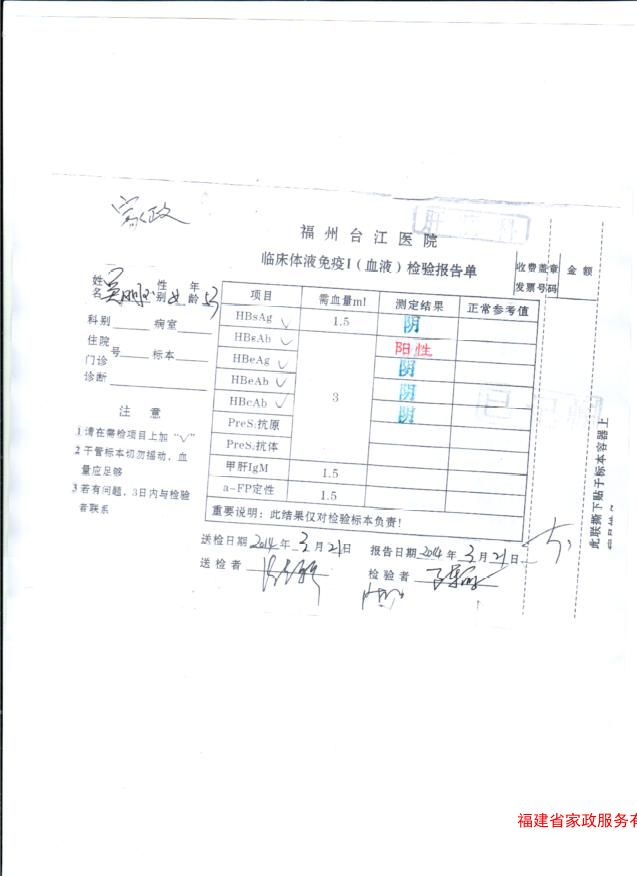 家政
肝
科
福州台江医院
临床体液免疫I(血液)检验报告单
收费盖章 金额
发票号码
姓名 吴 性别 女 年龄
科别 病室
住院
门诊 号 标本
诊断
注意
1 请在需检项目上加“√”
2 干管标本切勿摇动,血
量应足够
3 若有问题,3日内与检验
者联系
项目 需血量ml 测定结果 正常参考值
HBsAg √ 1.5 阴
HBsAb √ 3 阳性
HBeAg √ 阴
HBeAb √ 阴
HBcAb √ 阴
PreS₁抗原
PreS₁抗体
甲肝IgM 1.5
a-FP定性 1.5
重要说明:此结果仅对检验标本负责!
送检日期 2014年 3月 21日 报告日期 2014年 3月 21日
送检者 检验者
此联撕下贴于标本容器上
福建省家政服务有